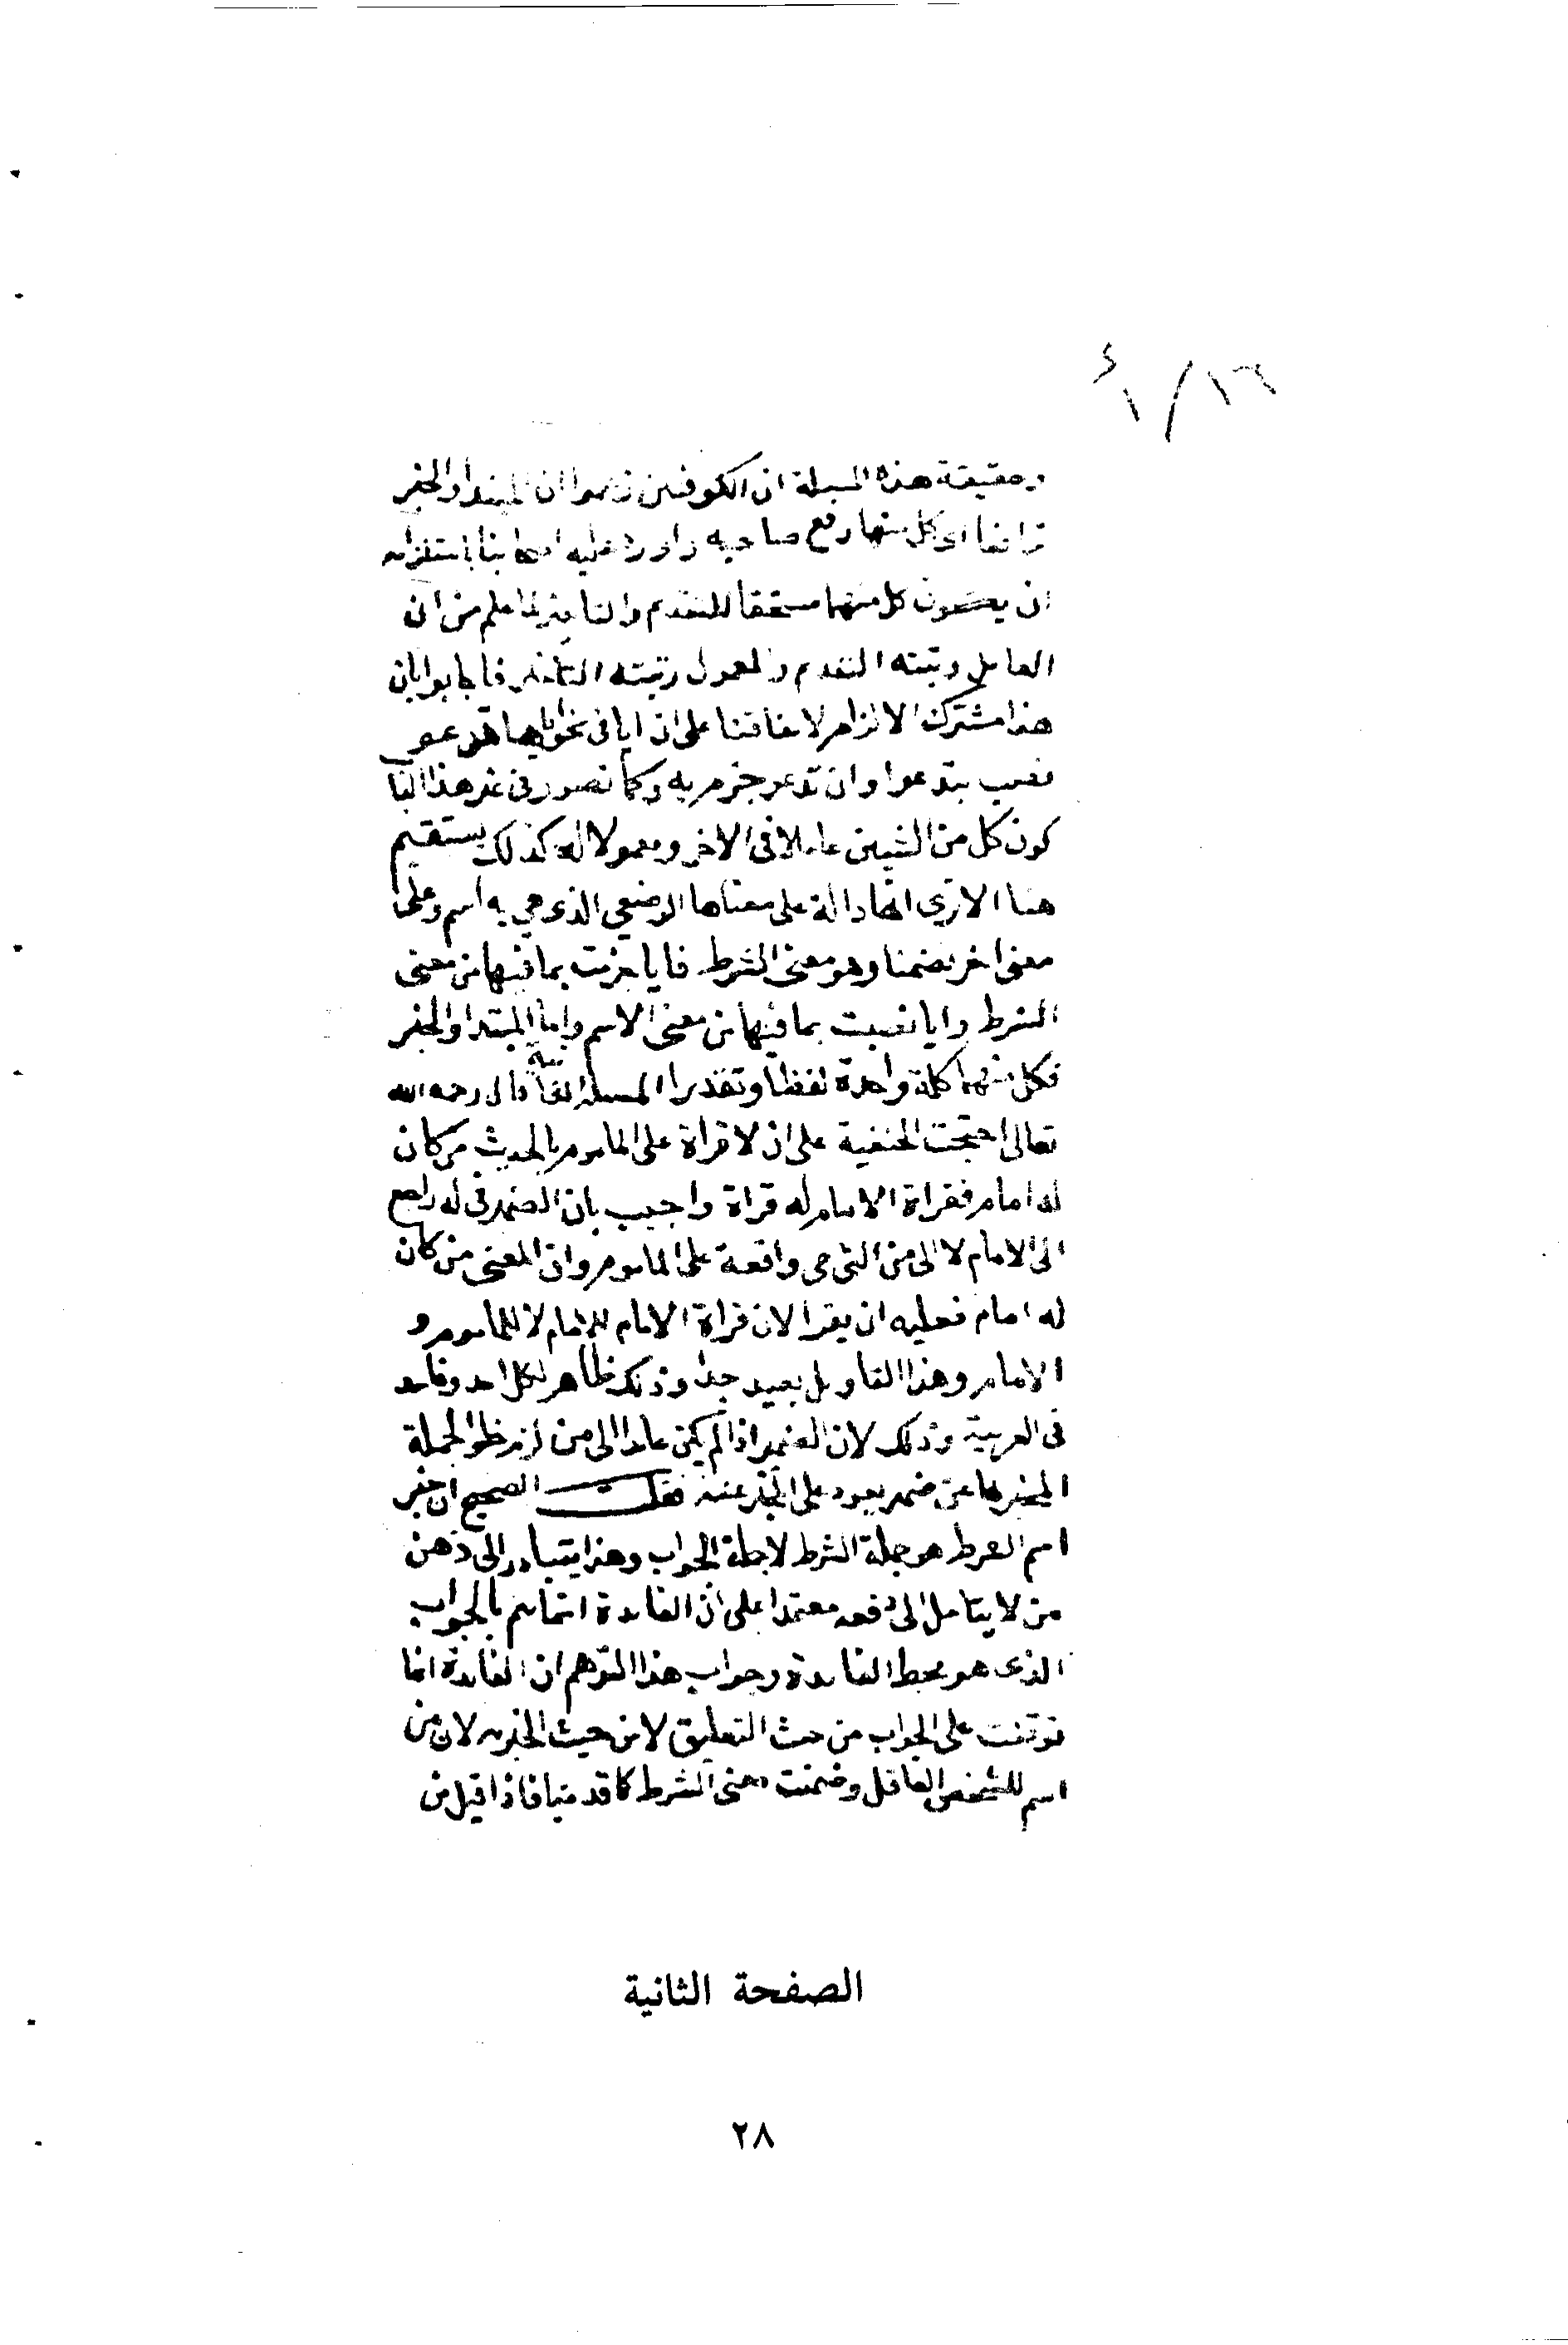 ١٦/١
وحقيقة هذه المسيلة ان الكوفيين زعموا ان المبتدا والخبر
ترافعا اى كل منهما رفع صاحبه واورد عليه اصحابنا باستلزامه
ان يكون كل منهما مستحقا للتقدم والتاخير لما علم من ان
العامل رتبته التقدم والمعمول رتبته التاخير فاجابوا بان
هذا مشترك الالزام لاتفاقنا على ان ايا فى نحو اياما تدعو
نصب بتدعوا وان تدعو جزم به وكما تصور فى غير هذا البا
كون كل من الشيين عاملا فى الاخر ومعمولا له كذلك يستقيم
هنا الا ترى انها دالة على معناها الوضعي الذى هي به اسم وعلى
معنى اخر تضمنا وهو معنى الشرط فايا جزمت بما فيها من معنى
الشرط وايا نصبت بما فيها من معنى الاسم واما المبتدا والخبر
فكل منهما كلمة واحدة لفظا وتقديرا المسيلة الثانية قال رحمه الله
تعالى احتجت الحنفية على ان لا قراة على الماموم بالحديث من كان
له امام فقراة الامام له قراة واجيب بان الضمير فى له راجع
الى الامام لا الى من التى هى واقعة على الماموم وان المعنى من كان
له امام فعليه ان يقرا لان قراة الامام للامام لا للماموم و
الامام وهذا التاويل بعيد جدا وذلك ظاهر لكل احد وفاسد
فى العربية وذلك لان الضمير اذا لم يكن عايدا الى من لزم خلو الجملة
المخبر بها عن ضمير يعود على المخبر عنه فقلت الصحيح ان خبر
اسم الشرط هو جملة الشرط لا جملة الجواب وهذا يتبادر الى ذهن
من لا يتامل الى دفعه معتمدا على ان الفايدة انما تتم بالجواب
الذى هو محط الفايدة وجواب هذا التوهم ان الفايدة انما
توقفت على الجواب من حيث التعليق لا من حيث الخبرية لان من
اسم للشخص العاقل وضمنت معنى الشرط كما قدمنا فاذا قيل من
الصفحة الثانية
٢٨